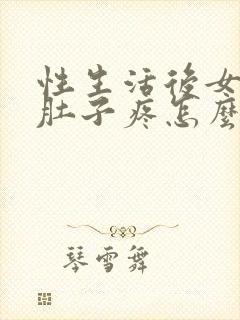 性生活後女
肚子疼怎麼
琴雪舞